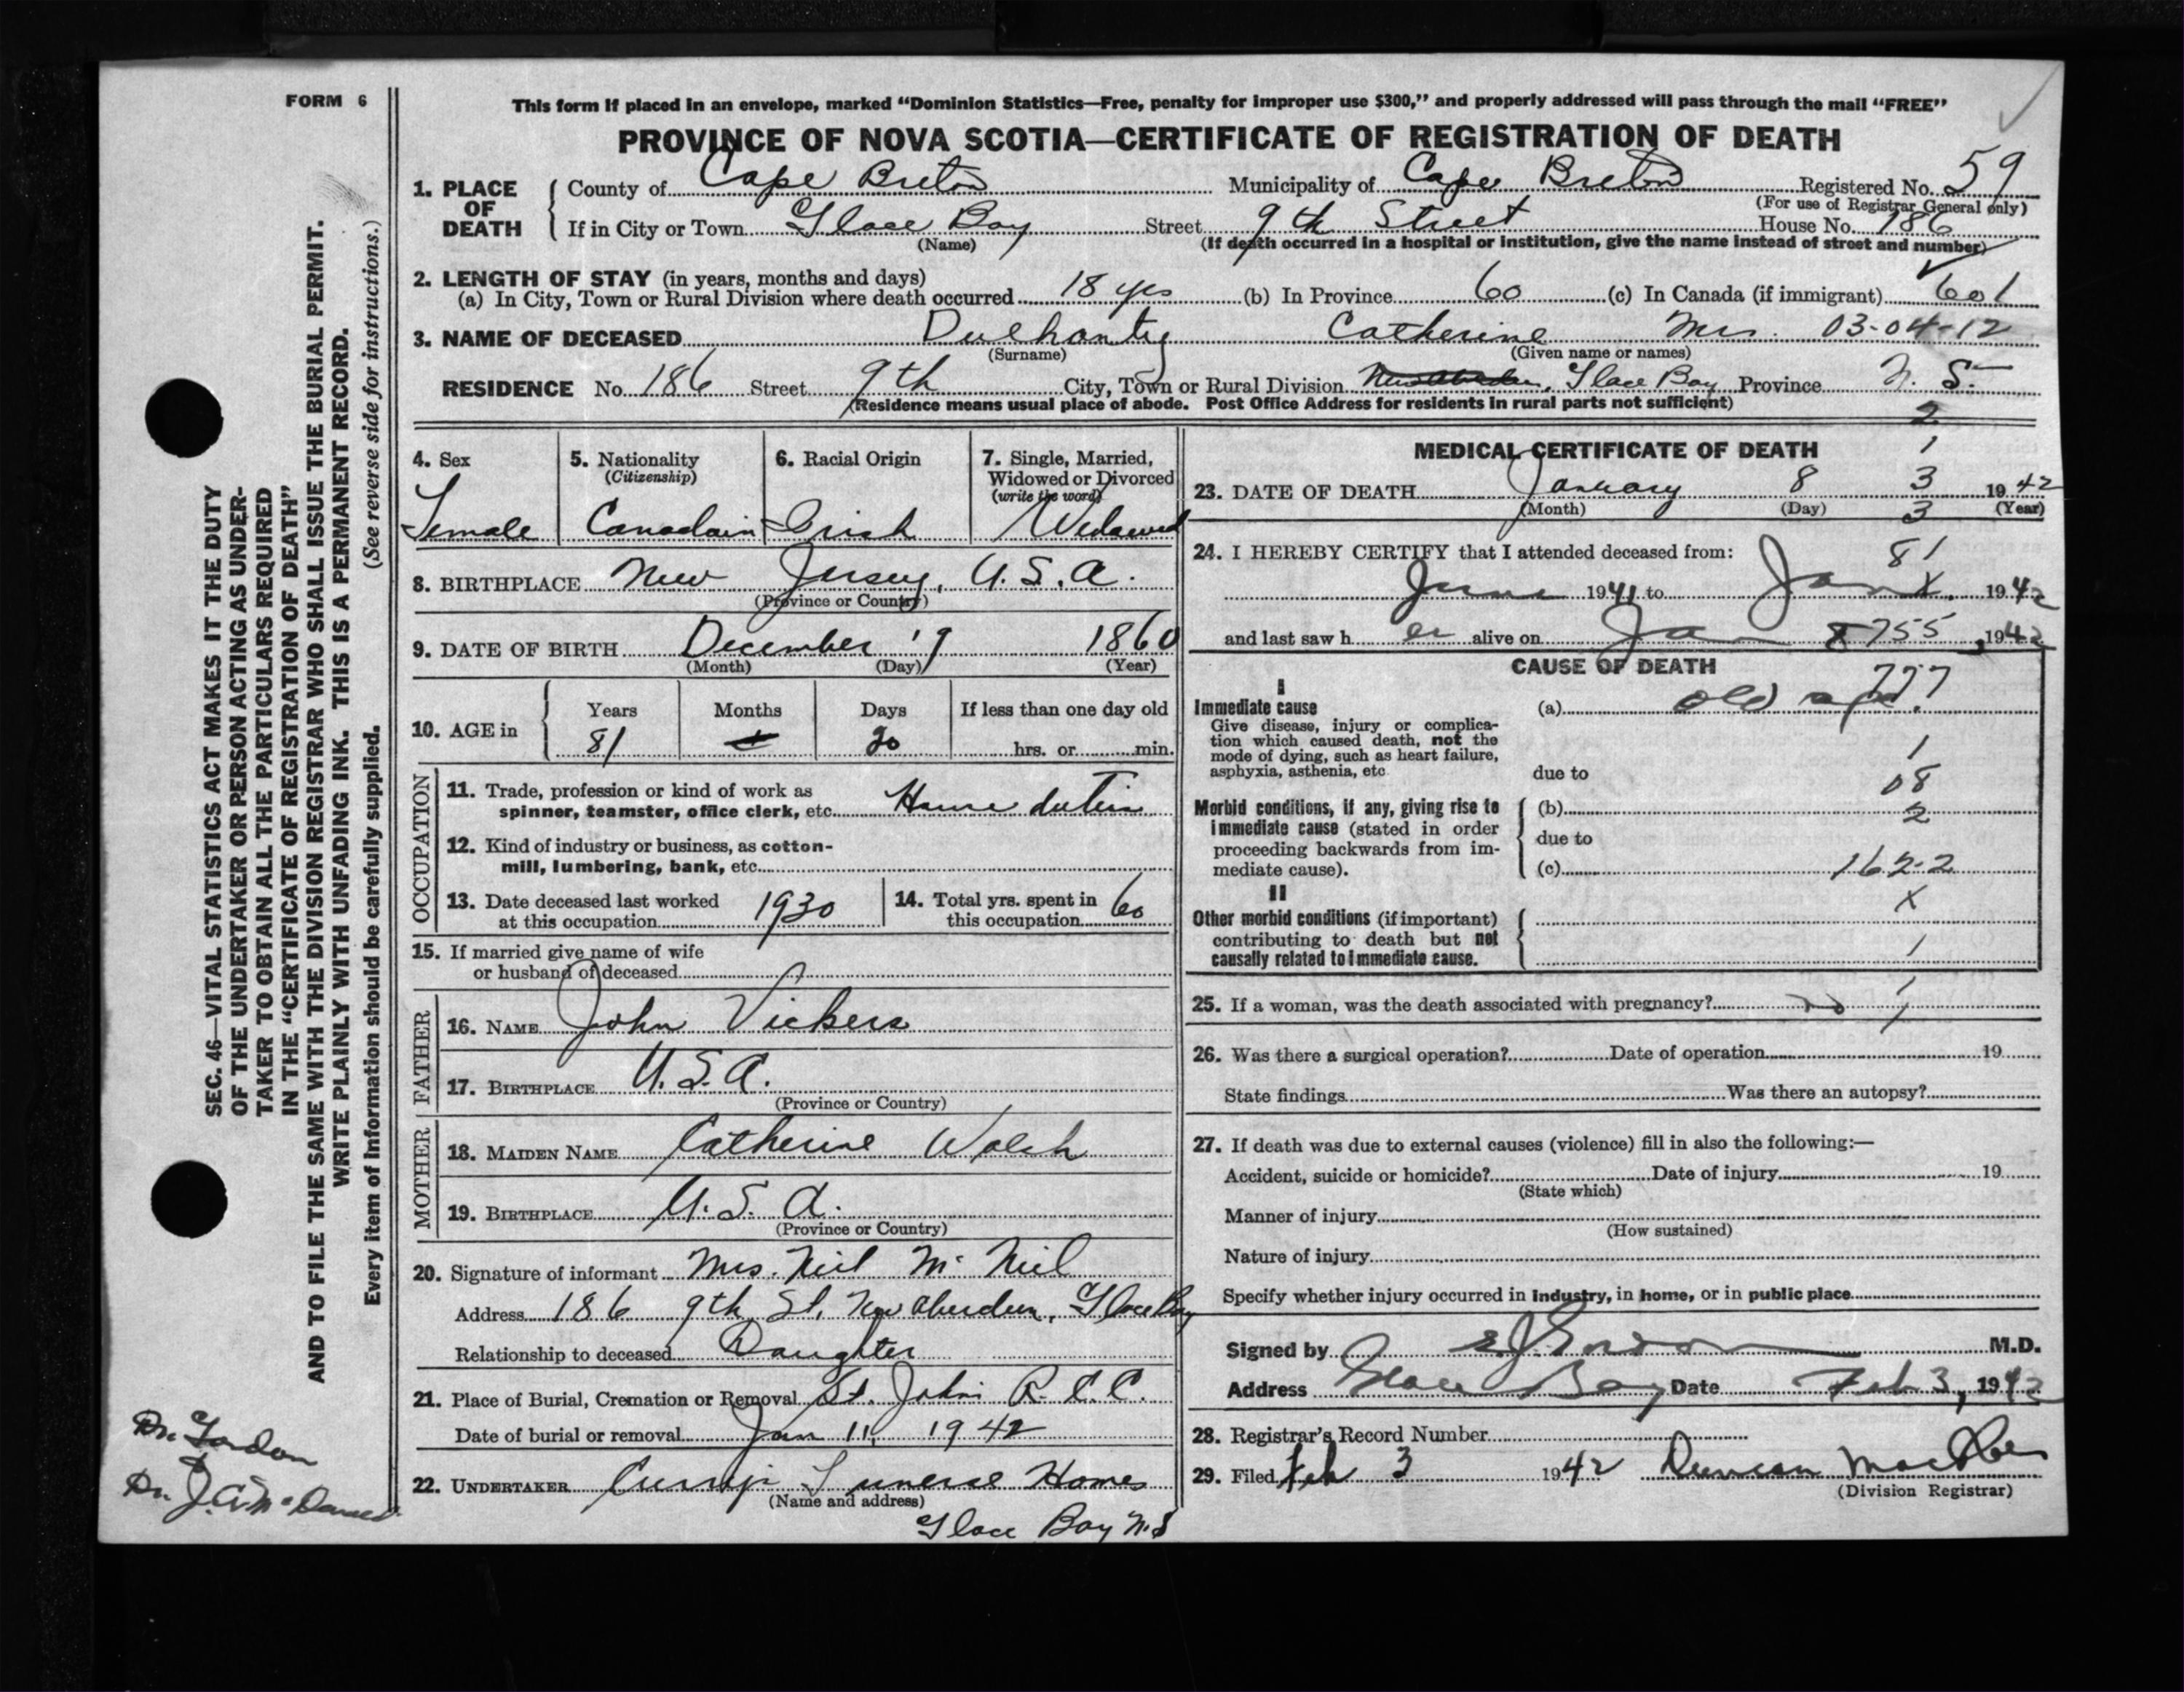 FORM 6
This form if placed in an envelope, marked “Dominion Statistics—Free, penalty for improper use $300,” and properly addressed will pass through the mail “FREE”
PROVINCE OF NOVA SCOTIA—CERTIFICATE OF REGISTRATION OF DEATH
1. PLACE OF DEATH County of Cape Breton Municipality of Cape Breton Registered No. 59
(For use of Registrar General only)
If in City or Town Glace Bay Street 9th Street House No. 186
(Name) (If death occurred in a hospital or institution, give the name instead of street and number)
2. LENGTH OF STAY (in years, months and days)
(a) In City, Town or Rural Division where death occurred 18 yrs (b) In Province 60 (c) In Canada (if immigrant) 60 1
3. NAME OF DECEASED Dulhanty Catherine Mrs. 03-04-12
(Surname) (Given name or names)
RESIDENCE No. 186 Street 9th City, Town or Rural Division Glace Bay Province N. S.
(Residence means usual place of abode. Post Office Address for residents in rural parts not sufficient)
2
4. Sex 5. Nationality 6. Racial Origin 7. Single, Married,
(Citizenship) Widowed or Divorced
(write the word)
Female Canadain Irish Widowed
8. BIRTHPLACE New Jersey, U.S.A.
(Province or Country)
9. DATE OF BIRTH December 19 1860
(Month) (Day) (Year)
10. AGE in Years Months Days If less than one day old
81 20 hrs. or min.
OCCUPATION
11. Trade, profession or kind of work as
spinner, teamster, office clerk, etc. House duties
12. Kind of industry or business, as cotton-
mill, lumbering, bank, etc.
13. Date deceased last worked 14. Total yrs. spent in
at this occupation 1930 this occupation 60
15. If married give name of wife
or husband of deceased
FATHER
16. NAME John Vickers
17. BIRTHPLACE U.S.A.
(Province or Country)
MOTHER
18. MAIDEN NAME Catherine Walsh
19. BIRTHPLACE U.S.A.
(Province or Country)
20. Signature of informant Mrs. Neil McNeil
Address 186 9th St, New Aberdeen, Glace Bay
Relationship to deceased Daughter
21. Place of Burial, Cremation or Removal St. John R.C.C.
Date of burial or removal Jan 11, 1942
22. UNDERTAKER Funeral Homes
(Name and address)
Glace Bay N.S
MEDICAL CERTIFICATE OF DEATH 1
23. DATE OF DEATH January 8 3 1942
(Month) (Day) 3 (Year)
24. I HEREBY CERTIFY that I attended deceased from: 81
June 1941 to Jan 1942
and last saw her alive on Jan 8 755, 1942
CAUSE OF DEATH
777
I
Immediate cause (a) old age.
Give disease, injury or complica-
tion which caused death, not the
mode of dying, such as heart failure,
asphyxia, asthenia, etc
1
due to 08
Morbid conditions, if any, giving rise to (b) 2
immediate cause (stated in order due to
proceeding backwards from im-
mediate cause). (c) 162-2
II X
Other morbid conditions (if important)
contributing to death but not
causally related to immediate cause. 1
25. If a woman, was the death associated with pregnancy? no 1
26. Was there a surgical operation? Date of operation 19
State findings Was there an autopsy?
27. If death was due to external causes (violence) fill in also the following:—
Accident, suicide or homicide? Date of injury 19
(State which)
Manner of injury
(How sustained)
Nature of injury
Specify whether injury occurred in industry, in home, or in public place
Signed by M.D.
Address Glace Bay Date Feb 3, 1942
28. Registrar's Record Number
29. Filed Feb 3 1942 Duncan
(Division Registrar)
SEC. 46—VITAL STATISTICS ACT MAKES IT THE DUTY
OF THE UNDERTAKER OR PERSON ACTING AS UNDER-
TAKER TO OBTAIN ALL THE PARTICULARS REQUIRED
IN THE “CERTIFICATE OF REGISTRATION OF DEATH”
AND TO FILE THE SAME WITH THE DIVISION REGISTRAR WHO SHALL ISSUE THE BURIAL PERMIT.
WRITE PLAINLY WITH UNFADING INK. THIS IS A PERMANENT RECORD.
Every item of information should be carefully supplied. (See reverse side for instructions.)
Dr. Gordon
Dr. J.A. McDonald